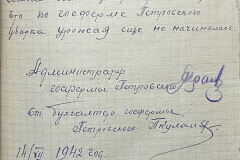 что по госферме Петровского
уборка урожая еще не начиналась.
Администратор
госфермы Петровско
Ст. бухгалтер госфермы
Петровского
14/VII 1942 год.